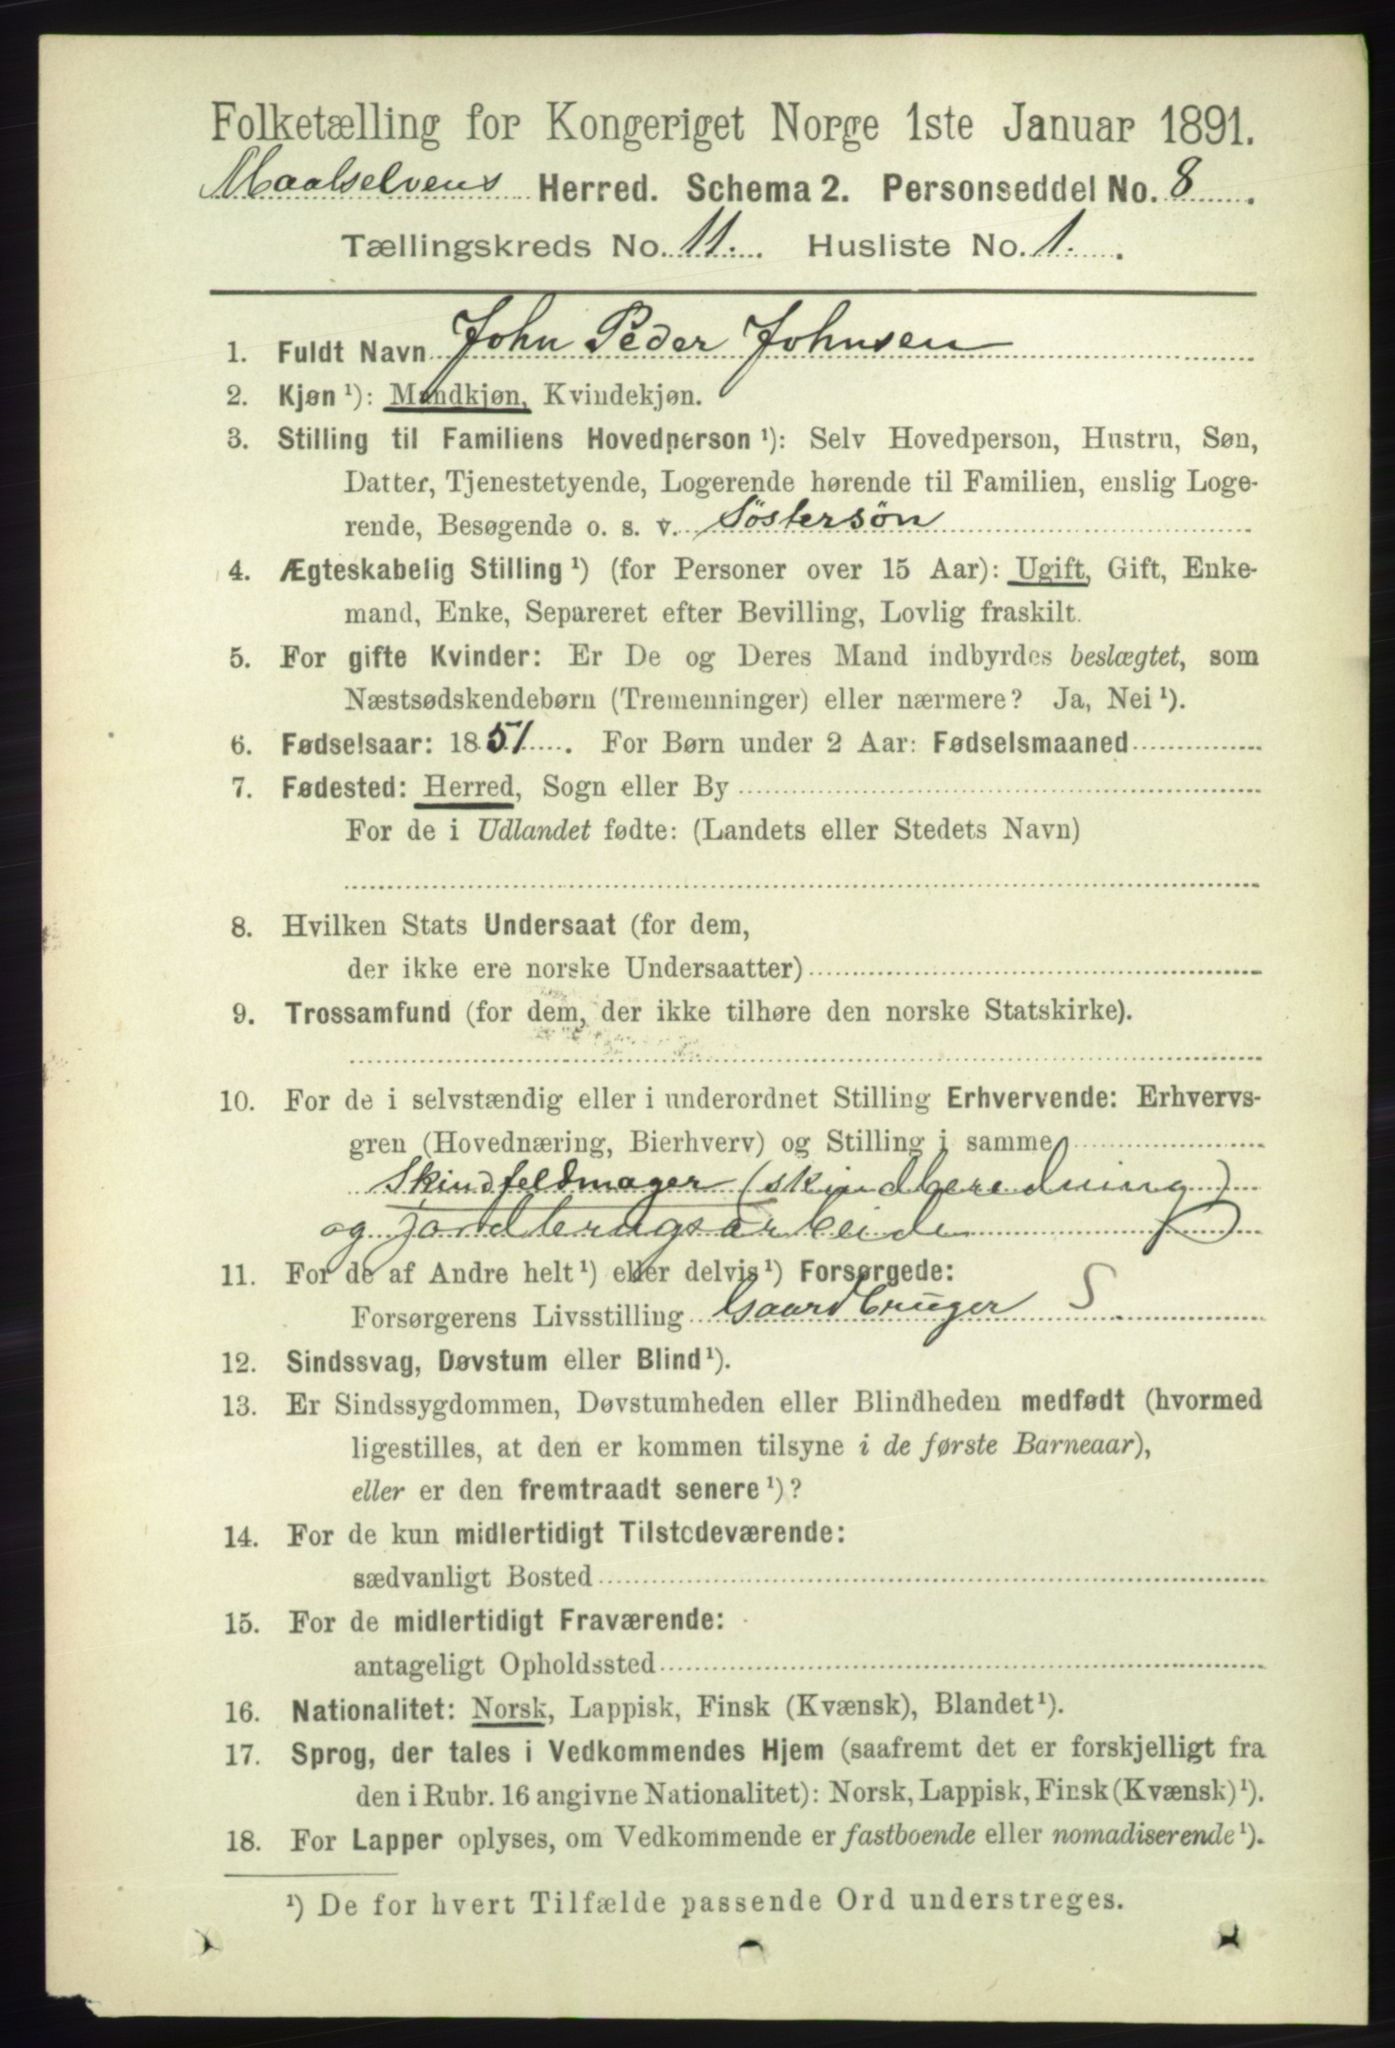 Folketælling for Kongeriget Norge 1ste Januar 1891.
Maalselvens Herred. Schema 2. Personseddel No. 8
Tællingskreds No. 11. Husliste No. 1.
1. Fuldt Navn John Peder Johnsen
2. Kjøn ¹): Mandkjøn, Kvindekjøn.
3. Stilling til Familiens Hovedperson ¹): Selv Hovedperson, Hustru, Søn,
Datter, Tjenestetyende, Logerende hørende til Familien, enslig Loge-
rende, Besøgende o. s. v. Söstersön
4. Ægteskabelig Stilling ¹) (for Personer over 15 Aar): Ugift, Gift, Enke-
mand, Enke, Separeret efter Bevilling, Lovlig fraskilt.
5. For gifte Kvinder: Er De og Deres Mand indbyrdes beslægtet, som
Næstsødskendebørn (Tremenninger) eller nærmere? Ja, Nei ¹).
6. Fødselsaar: 1851. For Børn under 2 Aar: Fødselsmaaned
7. Fødested: Herred, Sogn eller By
For de i Udlandet fødte: (Landets eller Stedets Navn)
8. Hvilken Stats Undersaat (for dem,
der ikke ere norske Undersaatter)
9. Trossamfund (for dem, der ikke tilhøre den norske Statskirke).
10. For de i selvstændig eller i underordnet Stilling Erhvervende: Erhvervs-
gren (Hovednæring, Bierhverv) og Stilling i samme
Skindfeldmager (skindberedning)
og jordbrugsarbeide
11. For de af Andre helt ¹) eller delvis ¹) Forsørgede:
Forsørgerens Livsstilling Gaardbruger S
12. Sindssvag, Døvstum eller Blind ¹).
13. Er Sindssygdommen, Døvstumheden eller Blindheden medfødt (hvormed
ligestilles, at den er kommen tilsyne i de første Barneaar),
eller er den fremtraadt senere ¹)?
14. For de kun midlertidigt Tilstedeværende:
sædvanligt Bosted
15. For de midlertidigt Fraværende:
antageligt Opholdssted
16. Nationalitet: Norsk, Lappisk, Finsk (Kvænsk), Blandet ¹).
17. Sprog, der tales i Vedkommendes Hjem (saafremt det er forskjelligt fra
den i Rubr. 16 angivne Nationalitet): Norsk, Lappisk, Finsk (Kvænsk) ¹).
18. For Lapper oplyses, om Vedkommende er fastboende eller nomadiserende ¹).
¹) De for hvert Tilfælde passende Ord understreges.